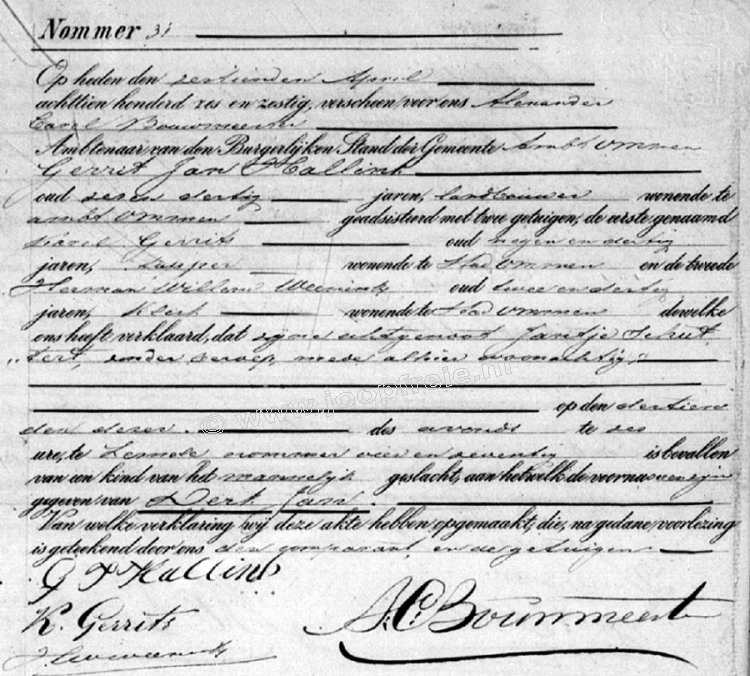 Nommer 31
Op heden den zestienden April
achttien honderd zes en zestig, verscheen voor ons Alexander
Carel Bouwmeester
Ambtenaar van den Burgerlijken Stand der Gemeente Ambt Ommen
Gerrit Jan Hallink
oud zes en dertig jaren, landbouwer wonende te
ambt Ommen geadsisteerd met twee getuigen, de eerste genaamd
Karel Gerrits oud negen en dertig
jaren, wonende te Stad Ommen en de tweede
Herman Willem Weenink oud twee en dertig
jaren, Klerk wonende te Stad Ommen dewelke
ons heeft verklaard, dat zijne echtgenoot Jantje Schut
"tert, zonder beroep, mede alhier woonachtig,"
op den dertien
den dezer des avonds te zes
ure, te Lemele nommer vier en zeventig is bevallen
van een kind van het mannelijk geslacht, aan hetwelk de voornamen zijn
gegeven van Derk Jan
Van welke verklaring wij deze akte hebben opgemaakt, die, na gedane voorlezing
is geteekend door ons den comparant en de getuigen
G J Hallink
K. Gerrits
A.C. Bouwmeester
HW Weenink
© www.joopfroje.nl